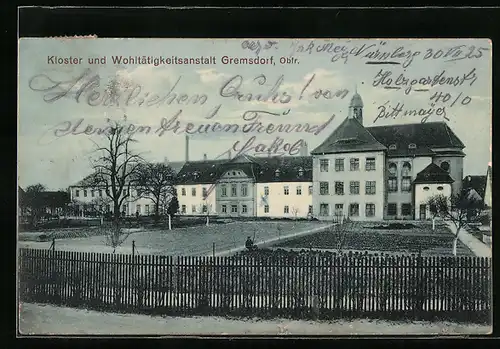 Kloster und Wohltätigkeitsanstalt Gremsdorf, Obfr.
Jak May Nürnberg 30 VII 25
Holzgartenstr
40/0
Bittmayer
Herzlichen Gruß von
deinem treuen Freund
Jakob